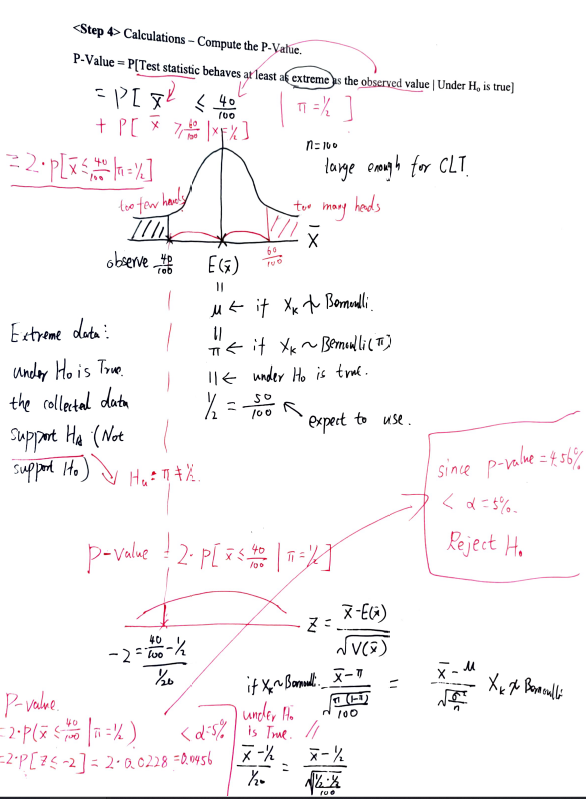 <Step 4> Calculations – Compute the P-Value.
P-Value = P[Test statistic behaves at least as extreme as the observed value | Under H₀ is true]
= P[ x̄ ≤ 40/100 | π = 1/2 ]
+ P[ x̄ ≥ 60/100 | π = 1/2]
= 2·P[x̄ ≤ 40/100 | π = 1/2]
n = 100
large enough for CLT.
too few heads
too many heads
x̄
observe 40/100
E(x̄)
60/100
||
μ ← if Xₖ ≁ Bernoulli.
||
π ← if Xₖ ~ Bernoulli(π)
|| ← under H₀ is true.
1/2 = 50/100 ↖ expect to use.
Extreme data:
under H₀ is True.
the collected data
support Hₐ. (Not
support H₀)
Hₐ: π ≠ 1/2.
since p-value = 4.56%
< α = 5%.
Reject H₀
P-value = 2·P[x̄ ≤ 40/100 | π = 1/2]
-2 = (40/100 - 1/2) / (1/20)
Z = (x̄ - E(x̄)) / √V(x̄)
if Xₖ ~ Bernoulli. (x̄ - π) / √(π(1-π)/100) = (x̄ - μ) / √(σ²/n) Xₖ ≁ Bernoulli
under H₀
is True. //
(x̄ - 1/2) / (1/20) = (x̄ - 1/2) / √(1/2·1/2/100)
P-value.
= 2·P(x̄ ≤ 40/100 | π = 1/2) < α = 5%
= 2·P[Z ≤ -2] = 2·0.0228 = 0.0456